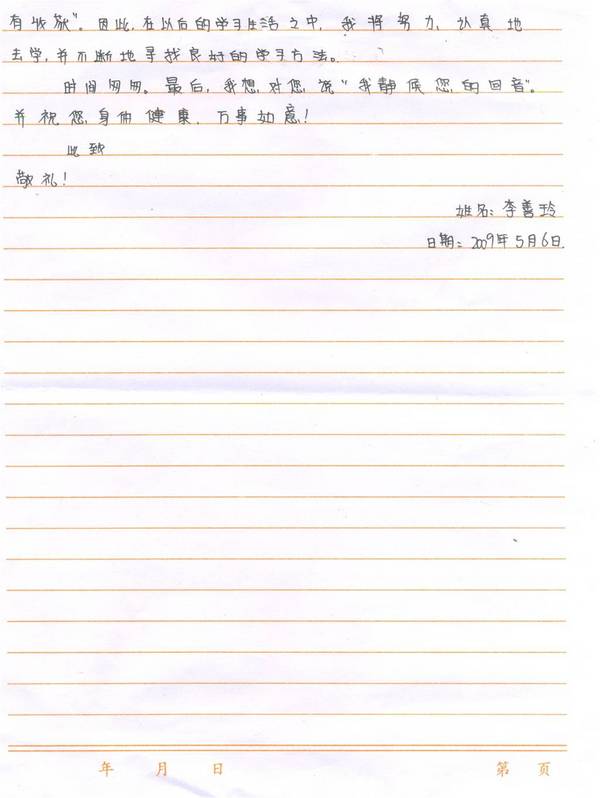 有收获”。因此,在以后的学习生活之中,我将努力、认真地
去学,并不断地寻找良好的学习方法。
时间匆匆。最后,我想对您说“我静候您的回音”。
并祝您身体健康、万事如意!
此致
敬礼!
姓名:李善玲
日期:2009年5月6日.
年 月 日 第 页